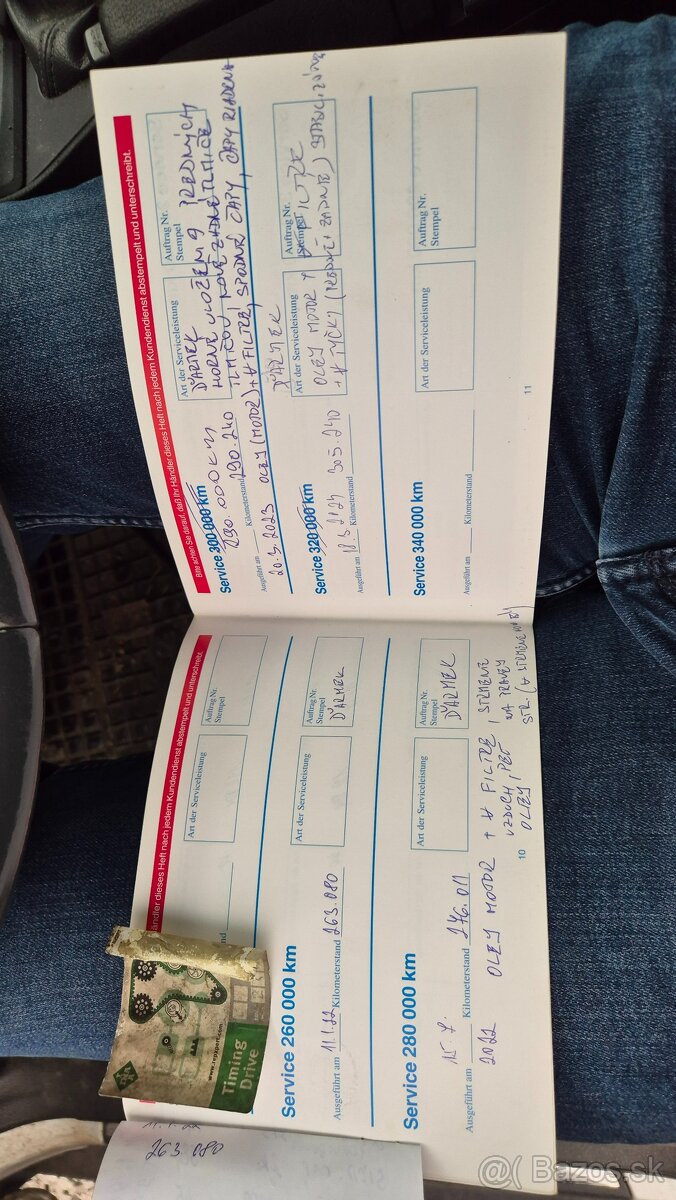 Händler dieses Heft nach jedem Kundendienst abstempelt und unterschreibt.
Art der Serviceleistung
Auftrag Nr.
Stempel
www.repxpert.com
Timing
Drive
11.1.22
263.080
Service 260 000 km
Art der Serviceleistung
Auftrag Nr.
Stempel
ĎARMEK
Ausgeführt am 11.1.22 Kilometerstand 263.080
Service 280 000 km
Art der Serviceleistung
Auftrag Nr.
Stempel
ĎARMEK
Ausgeführt am Kilometerstand 276.011
2022 OLEJ MOTOR + 4 FILTRE,
VZDUCH, PEĽ
OLEJ
NA PRAVEJ
STR.
10
Bitte achten Sie darauf, daß Ihr Händler dieses Heft nach jedem Kundendienst abstempelt und unterschreibt.
Service 300 000 km
290.000 KM
Art der Serviceleistung
Auftrag Nr.
Stempel
ĎARMEK
HORNÉ PREDNÝCH
Ausgeführt am Kilometerstand 290.240
20.3.2023 OLEJ (MOTOR) + 4 FILTRE, SPODNÉ ČAPY, ČAPY RIADENIA
ĎARMEK
Service 320 000 km
Art der Serviceleistung
Auftrag Nr.
Stempel
OLEJ MOTOR + FILTRE
Ausgeführt am 18.3.2024 Kilometerstand 305.240
+ 4 TYČKY (PREDNÉ I ZADNÉ)
Service 340 000 km
Art der Serviceleistung
Auftrag Nr.
Stempel
Ausgeführt am Kilometerstand
11
@( Bazos.sk